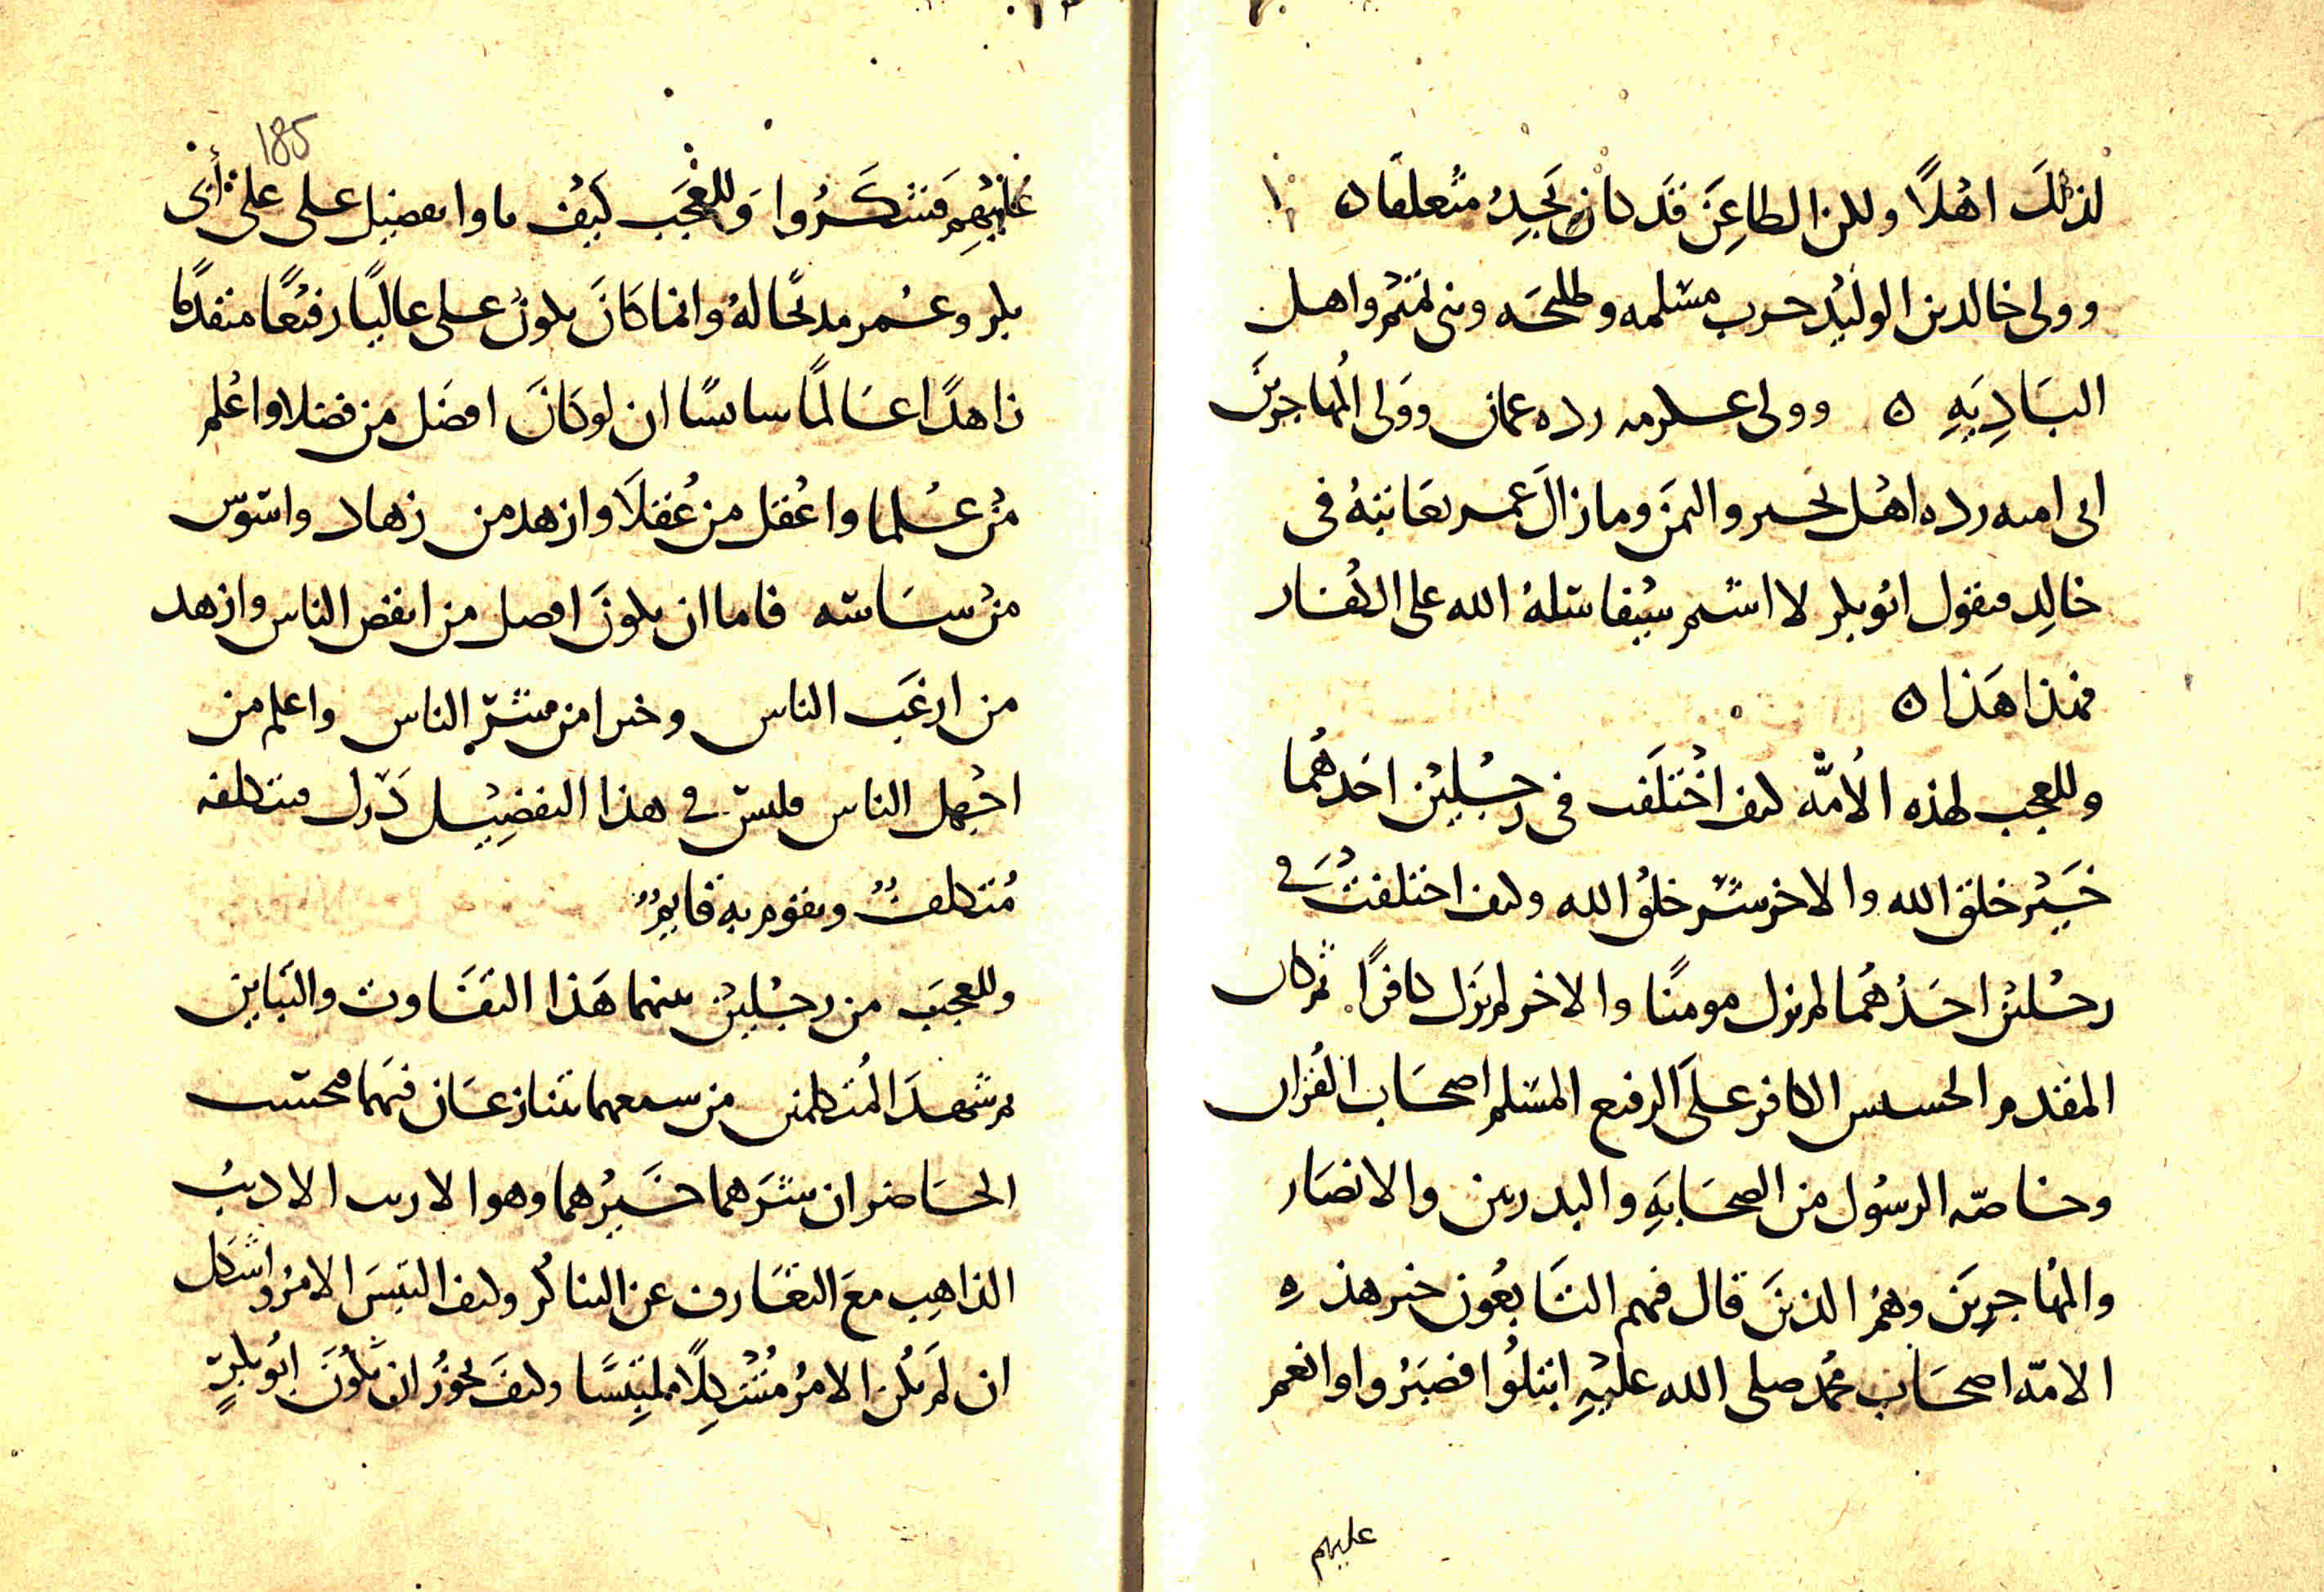 لذلك اهلًا ولكن الطاعِنَ قد كان يَجِدُ مُتعلقا ه
وولى خالد بن الوليد حرب مسَلمه وطليحَه وبنى تميم واهل
البَادِيَهِ ه وولى عكرمه رده عمان ووَلى المُهاجرَ بن
ابى اميه رده اهل والىمَن وما زالَ عمر يعَاتبهُ فى
خالِد فيقول ابُو بكر لا اشيم سَيفا سَلهُ الله على الكُفار
فهذا هَذا ه
وللعجب لهذه الاُمَّه كيف اخْتلَفت فى رجُليْن احَدهُما
خَيْر خلقِ الله والاخر شَر خلقْ الله وكيف اختلفتْ فى
رجُلين احَدُهُما لم يزل مومنًا والاخر لم يَزَل كافرًا ثم كان
المقدم الخسيس الكافر علىَ الرفيع المسَلم اصحَاب القُرآن
وخاصّه الرسُول من الصحَابَهِ والبدريين والانصَار
والمُهاجرِين وهُمُ الذينَ قال فيهم التَابعُون خير هذه
الامّه اصحَاب محُمد صلى الله عليْهِ ابتلُوا فصبَرُوا وانعم
عليهم
185
عَليْهِم فَشكَرُوا وَللعَجَب كَيْف راوا تفضيل على على أبى
بكر وعُمر مدحًا لهُ وانما كَانَ يكونُ على عاليًا رفيْعًا متقدمًا
زاهدًا عَالمًا سايسًا ان لو كَانَ افضَل من فضلا واعْلم
منْ عُلما واعْقل من عُقلاَ وازهد من زهاد واسَوس
منْ سَاسَه فاما ان يكونَ افضل من انقص الناس وازهد
من ارغَب الناس وخيرا من شرّ الناس واعلم من
اجْهل الناس فليسَ فى هذا التفضِيْل دَرَك يتكلفه
مُتكلفٌ ويقوم به قايمٌ
وللعجَب من رجُليْن بينهما هَذا التفَاوت والتَباين
ثم شهدَ المُتكلمين من سمعهما يتنازعَان فيَهما محتسب
الحَاضر ان شرَهما خَيرُهما وهو الاديب
الذاهِب معَ التعَارف عن التناكُر وكيف التبَسَ الامرُ واشكل
ان لَم يكُن الامرُ مُشْكِلًا ملتبِسًا وكيفَ يجوُزُ ان يكُونَ ابُو بكرٍ